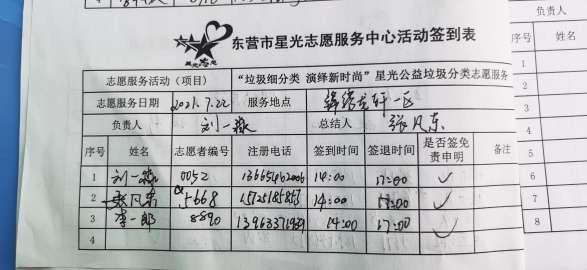 东营市星光志愿服务中心活动签到表
志愿服务活动（项目） “垃圾细分类 演绎新时尚”星光公益垃圾分类志愿服务
志愿服务日期 2021.7.22 服务地点 锦绣龙轩一区
负责人 刘一淼 总结人 张凡东
序号 姓名 志愿者编号 注册电话 签到时间 签退时间 是否签免责申明 备注
1 刘一淼 0052 14:00 17:00 ✓
2 张凡东 5668 14:00 17:00 ✓
3 李一郎 8890 14:00 17:00 ✓
4
负责人
序号 姓名
1
2
3
4
5
6
7
8